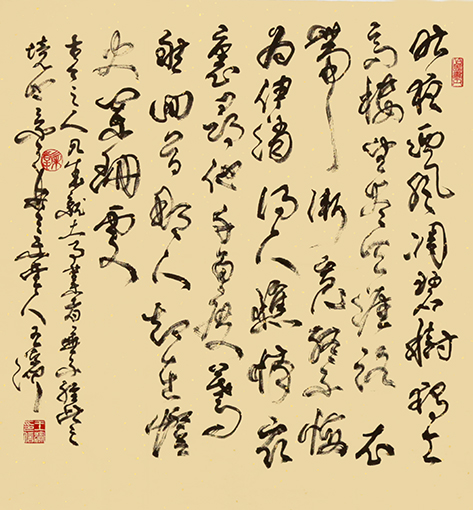 昨夜西風凋碧樹獨上
高樓望盡天涯路衣
帶漸寬終不悔
為伊消得人憔悴眾
裏尋他千百度驀
然回首那人却在燈
火闌珊處
古今之人凡成就大事業者無不經此之
境